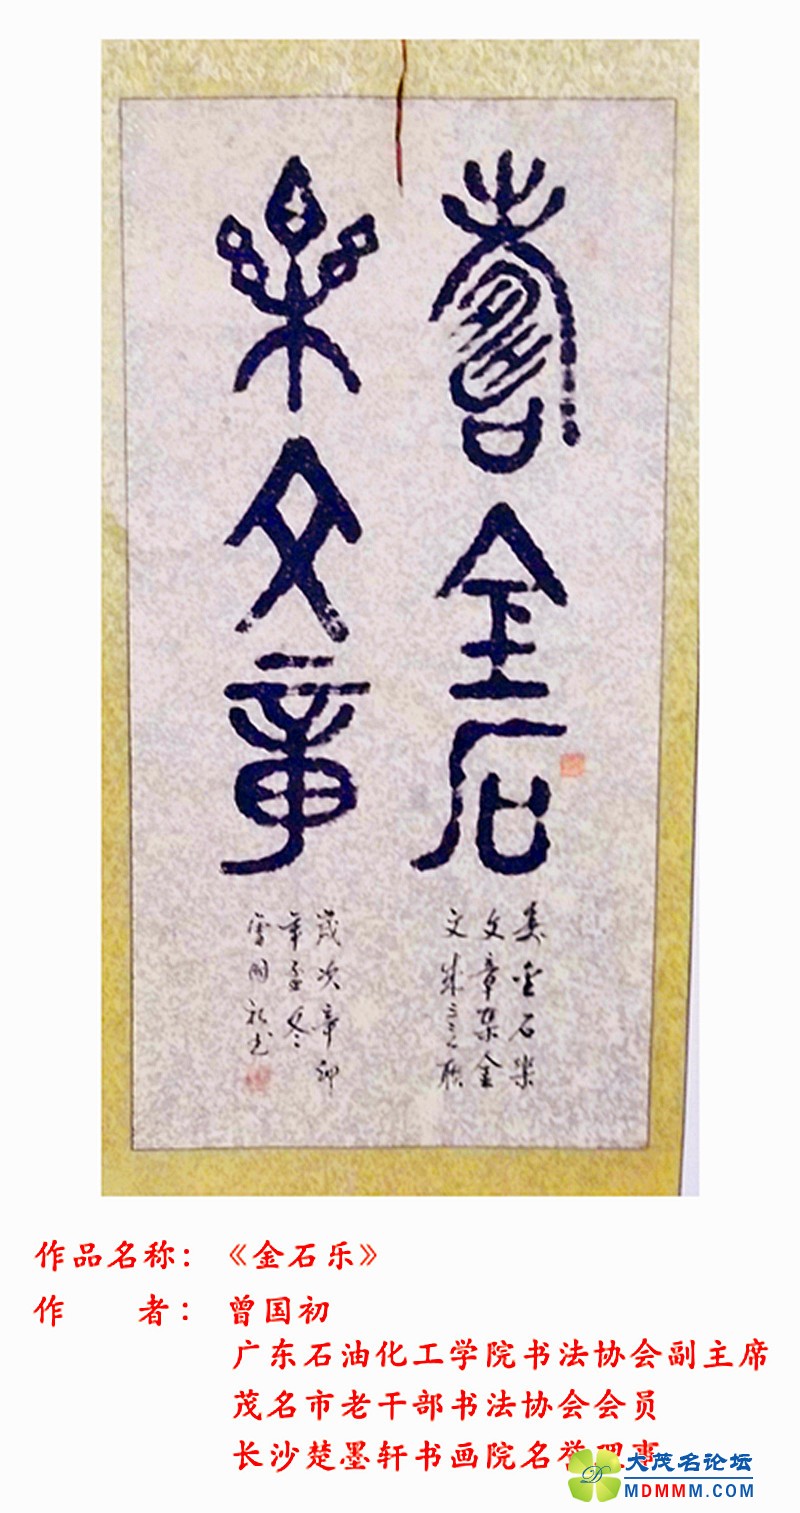 壽金石
樂文章
壽金石樂
文章集金
文成之联
歲次辛卯
年孟冬
曾国初书
作品名称：《金石乐》
作 者：曾国初
广东石油化工学院书法协会副主席
茂名市老干部书法协会会员
长沙楚墨轩书画院名誉理事
大茂名论坛
MDMMM.COM